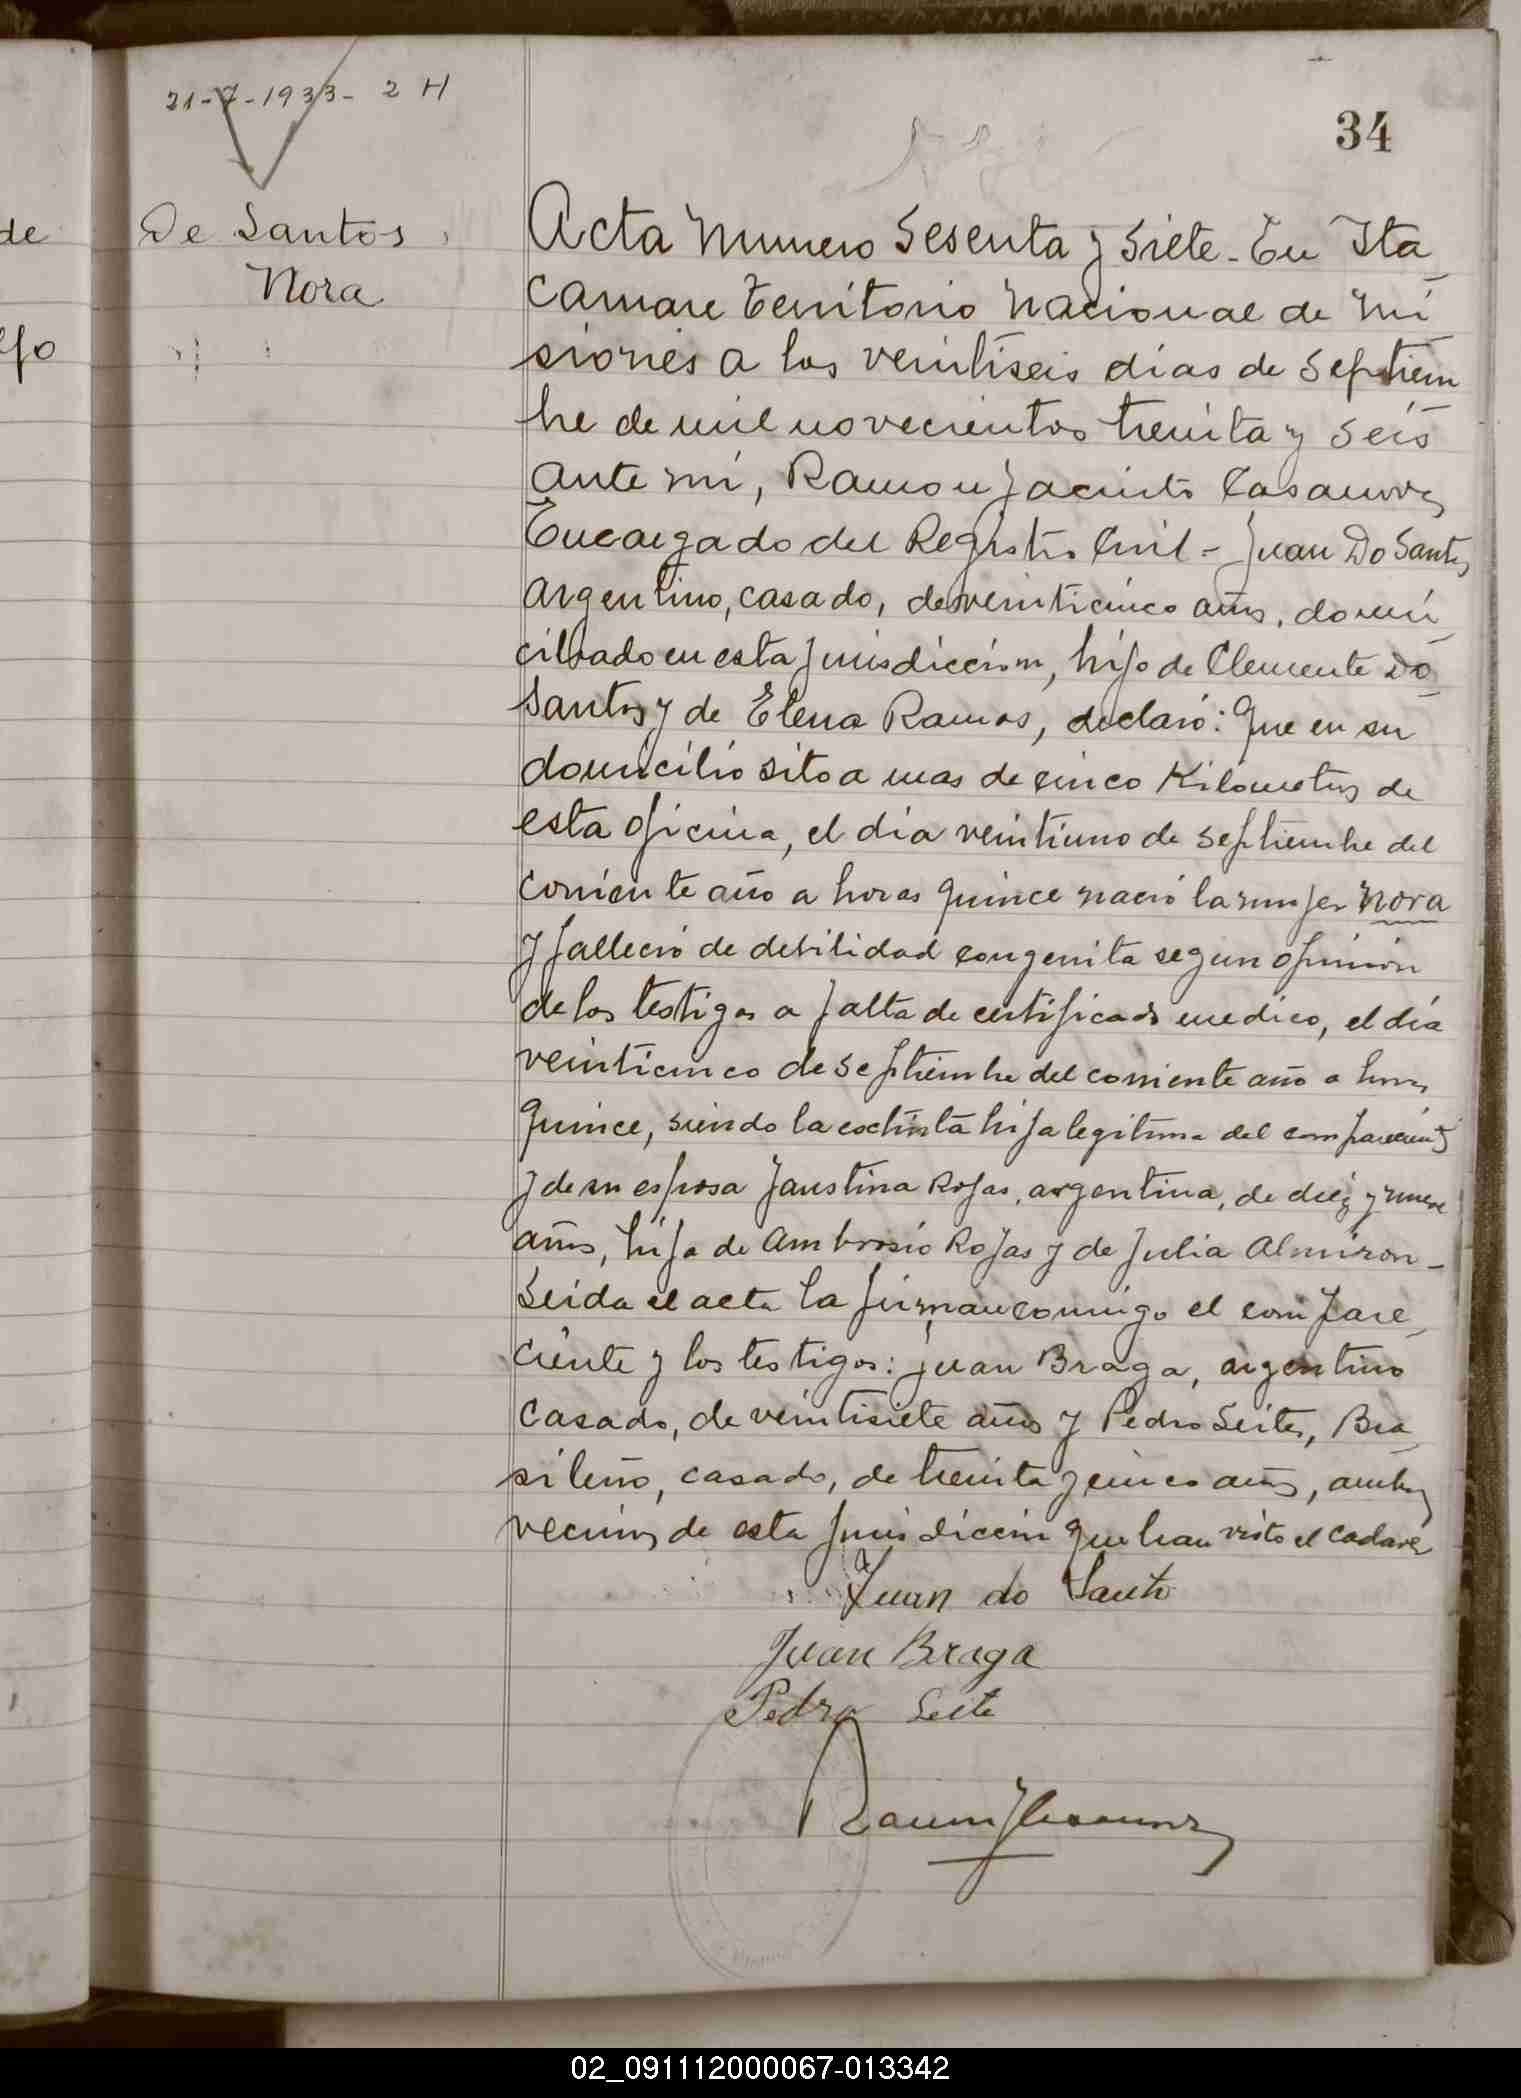 21-7-1933- 2 H
34
De Santos
Nora
de
Acta Numero Sesenta y Siete - En Ita
caruare Territorio Nacional de Mi
siones a los veintiseis días de Septiem
bre de mil novecientos treinta y seis
ante mi, Ramon Jacinto Casanova
Encargado del Registro Civil - Juan Do Santos
argentino, casado, de veinticinco años, domi
ciliado en esta jurisdiccion, hijo de Clemente Do
Santos y de Elena Ramos, declaró: Que en su
domicilio sito a mas de cinco Kilometros de
esta oficina, el día veintiuno de septiembre del
corriente año a horas quince nació la mujer Nora
y falleció de debilidad congenita segun opinión
de los testigos a falta de certificado medico, el día
veinticinco de septiembre del corriente año a horas
quince, siendo la extinta hija legitima del compareciente
y de su esposa Faustina Rojas, argentina, de diez y nueve
años, hija de Ambrosio Rojas y de Julia Almiron -
Leida el acta la firman conmigo el compare
ciente y los testigos: Juan Braga, argentino
casado, de veintisiete años y Pedro Leites, Bra
sileño, casado, de treinta y cinco años, ambos
vecinos de esta jurisdiccion que han visto el cadaver
Juan do Santo
Juan Braga
Pedro Leite
Ramon J Casanova
02_091112000067-013342